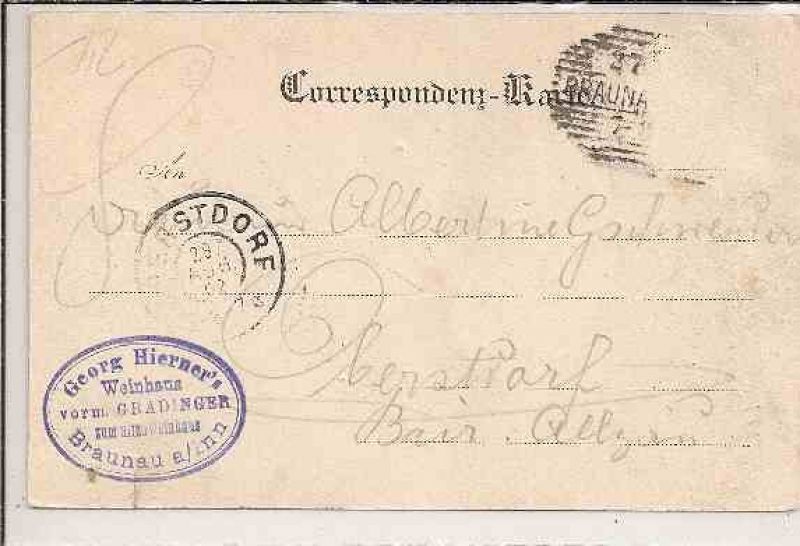 112
Correspondenz-Karte
27
BRAUNA
7
An
Albertine Gschwe
STDORF
Oberstdorf
Bair. Allgäu
Georg Hierner's
Weinhaus
vorm. GRADINGER
Braunau a/Inn